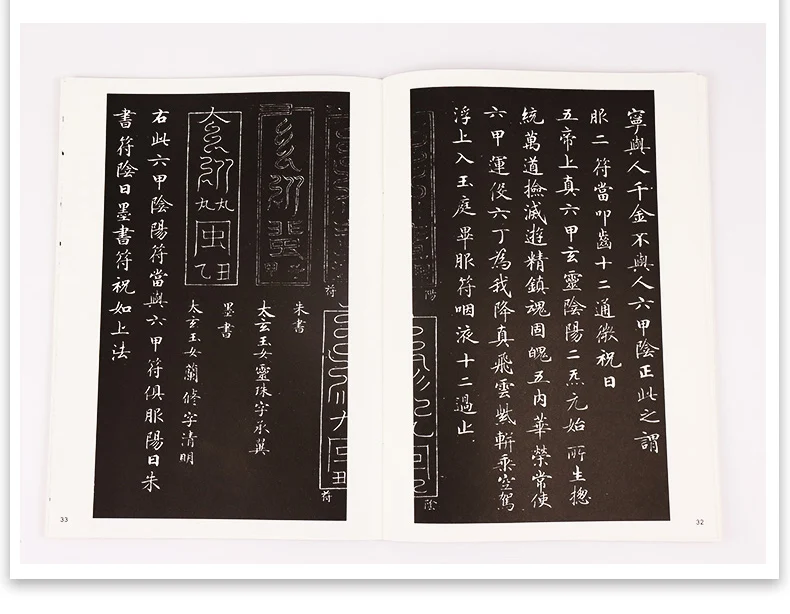 寧與人千金不與人六甲陰正此之謂
服二符當叩齒十二通微祝日
五帝上真六甲玄靈陰陽二炁元始所生揔
統萬道撿滅遊精鎮魂固魄五內華榮常使
六甲運役六丁為我降真飛雲紫軿乘空駕
浮上入玉庭畢服符咽液十二過止
陽
陰
32
符
符
朱書
太玄玉女靈珠字承翼
墨書
太玄玉女蘭修字清明
右此六甲陰陽符當與六甲符俱服陽日朱
書符陰日墨書符祝如上法
33